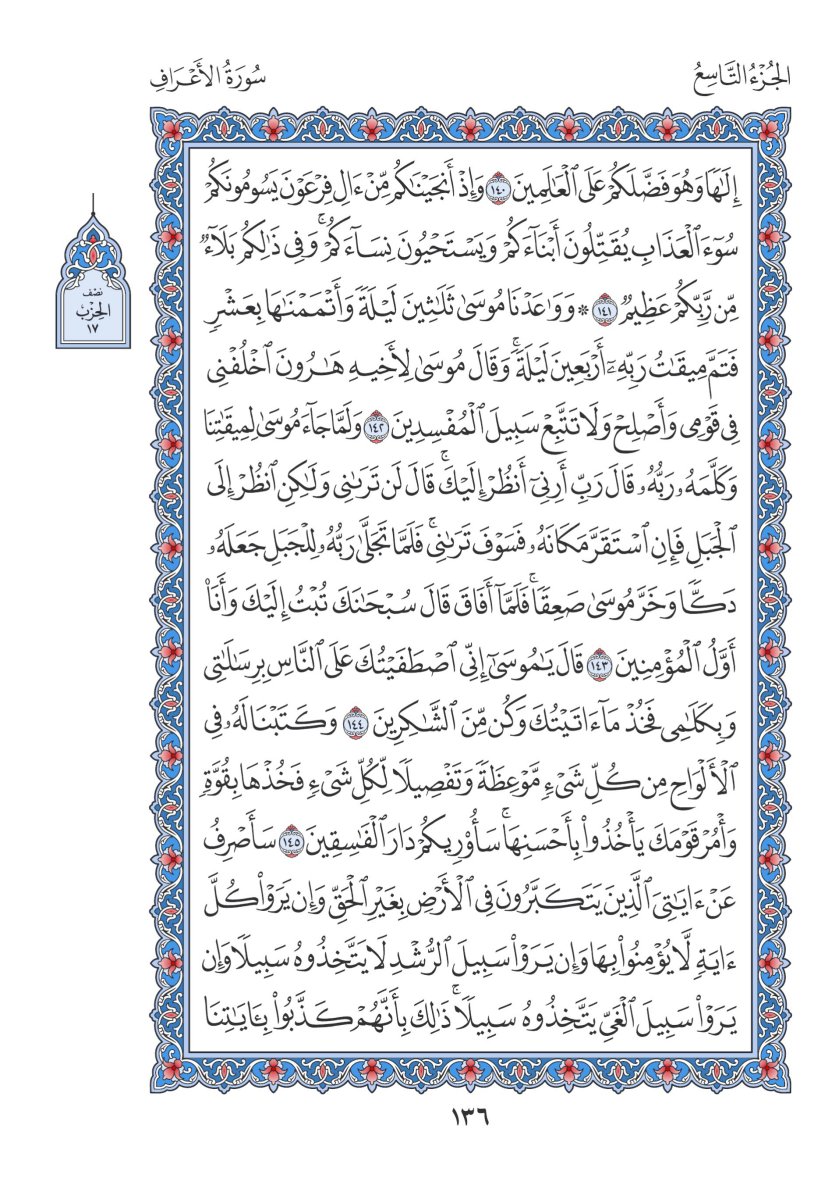 الجُزْءُ التَّاسِعُ
سُورَةُ الأَعْرَافِ
إِلَٰهًا وَهُوَ فَضَّلَكُمْ عَلَى ٱلْعَٰلَمِينَ ١٤٠ وَإِذْ أَنجَيْنَٰكُم مِّنْ ءَالِ فِرْعَوْنَ يَسُومُونَكُمْ
سُوٓءَ ٱلْعَذَابِ يُقَتِّلُونَ أَبْنَآءَكُمْ وَيَسْتَحْيُونَ نِسَآءَكُمْ ۚ وَفِى ذَٰلِكُم بَلَآءٌ
مِّن رَّبِّكُمْ عَظِيمٌ ١٤١ * وَوَٰعَدْنَا مُوسَىٰ ثَلَٰثِينَ لَيْلَةً وَأَتْمَمْنَٰهَا بِعَشْرٍ
فَتَمَّ مِيقَٰتُ رَبِّهِۦٓ أَرْبَعِينَ لَيْلَةً ۚ وَقَالَ مُوسَىٰ لِأَخِيهِ هَٰرُونَ ٱخْلُفْنِى
فِى قَوْمِى وَأَصْلِحْ وَلَا تَتَّبِعْ سَبِيلَ ٱلْمُفْسِدِينَ ١٤٢ وَلَمَّا جَآءَ مُوسَىٰ لِمِيقَٰتِنَا
وَكَلَّمَهُۥ رَبُّهُۥ قَالَ رَبِّ أَرِنِىٓ أَنظُرْ إِلَيْكَ ۚ قَالَ لَن تَرَىٰنِى وَلَٰكِنِ ٱنظُرْ إِلَى
ٱلْجَبَلِ فَإِنِ ٱسْتَقَرَّ مَكَانَهُۥ فَسَوْفَ تَرَىٰنِى ۚ فَلَمَّا تَجَلَّىٰ رَبُّهُۥ لِلْجَبَلِ جَعَلَهُۥ
دَكًّا وَخَرَّ مُوسَىٰ صَعِقًا ۚ فَلَمَّآ أَفَاقَ قَالَ سُبْحَٰنَكَ تُبْتُ إِلَيْكَ وَأَنَا۠
أَوَّلُ ٱلْمُؤْمِنِينَ ١٤٣ قَالَ يَٰمُوسَىٰٓ إِنِّى ٱصْطَفَيْتُكَ عَلَى ٱلنَّاسِ بِرِسَٰلَٰتِى
وَبِكَلَٰمِى فَخُذْ مَآ ءَاتَيْتُكَ وَكُن مِّنَ ٱلشَّٰكِرِينَ ١٤٤ وَكَتَبْنَا لَهُۥ فِى
ٱلْأَلْوَاحِ مِن كُلِّ شَىْءٍ مَّوْعِظَةً وَتَفْصِيلًا لِّكُلِّ شَىْءٍ فَخُذْهَا بِقُوَّةٍ
وَأْمُرْ قَوْمَكَ يَأْخُذُوا۟ بِأَحْسَنِهَا ۚ سَأُو۟رِيكُمْ دَارَ ٱلْفَٰسِقِينَ ١٤٥ سَأَصْرِفُ
عَنْ ءَايَٰتِىَ ٱلَّذِينَ يَتَكَبَّرُونَ فِى ٱلْأَرْضِ بِغَيْرِ ٱلْحَقِّ وَإِن يَرَوْا۟ كُلَّ
ءَايَةٍ لَّا يُؤْمِنُوا۟ بِهَا وَإِن يَرَوْا۟ سَبِيلَ ٱلرُّشْدِ لَا يَتَّخِذُوهُ سَبِيلًا وَإِن
يَرَوْا۟ سَبِيلَ ٱلْغَىِّ يَتَّخِذُوهُ سَبِيلًا ۚ ذَٰلِكَ بِأَنَّهُمْ كَذَّبُوا۟ بِـَٔايَٰتِنَا
نصف
الحزب
١٧
١٣٦